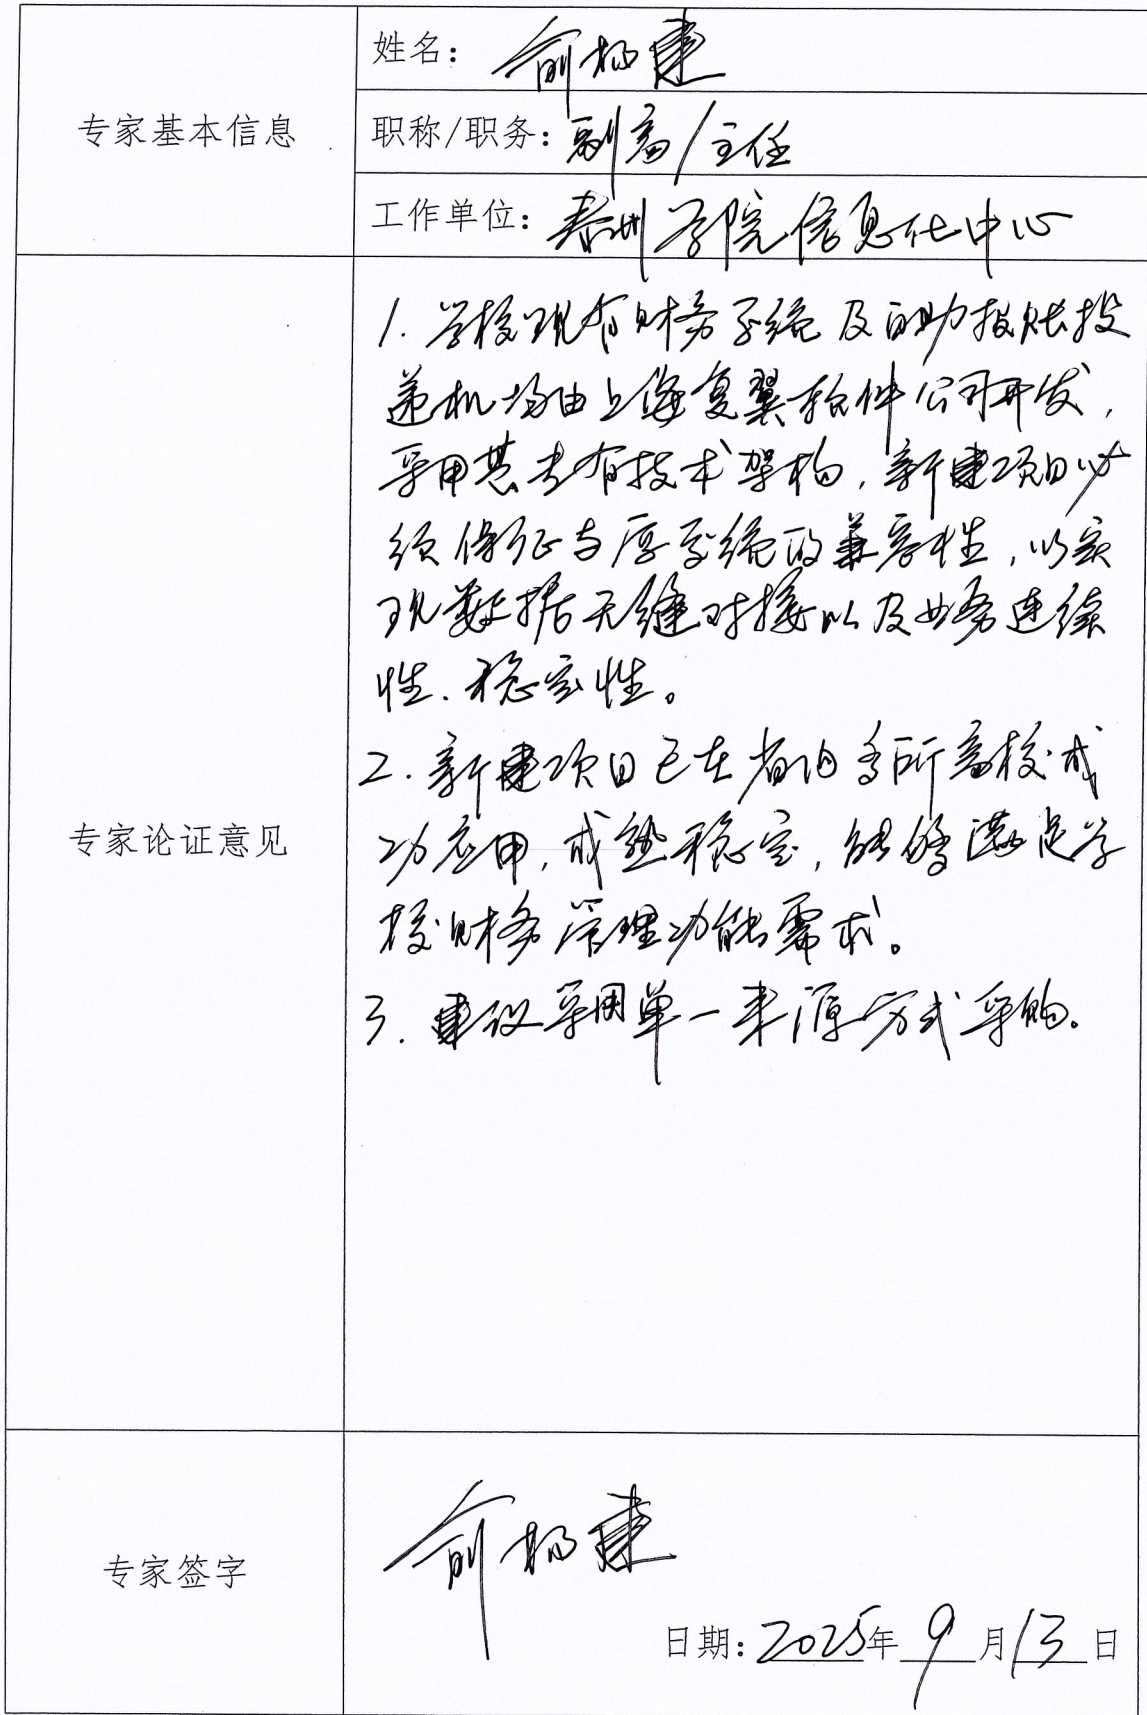 专家基本信息
姓名：俞扬建
职称/职务：副高/主任
工作单位：泰州学院信息化中心
专家论证意见
1. 学校现有财务系统及自助报账投
递机均由上海复翼软件公司开发，
采用其专有技术架构，新建项目必
须保证与原系统的兼容性，以实
现数据无缝对接以及业务连续
性、稳定性。
2. 新建项目已在省内多所高校成
功应用，成熟稳定，能够满足学
校财务管理功能需求。
3. 建议采用单一来源方式采购。
专家签字
俞扬建
日期：2025年9月13日